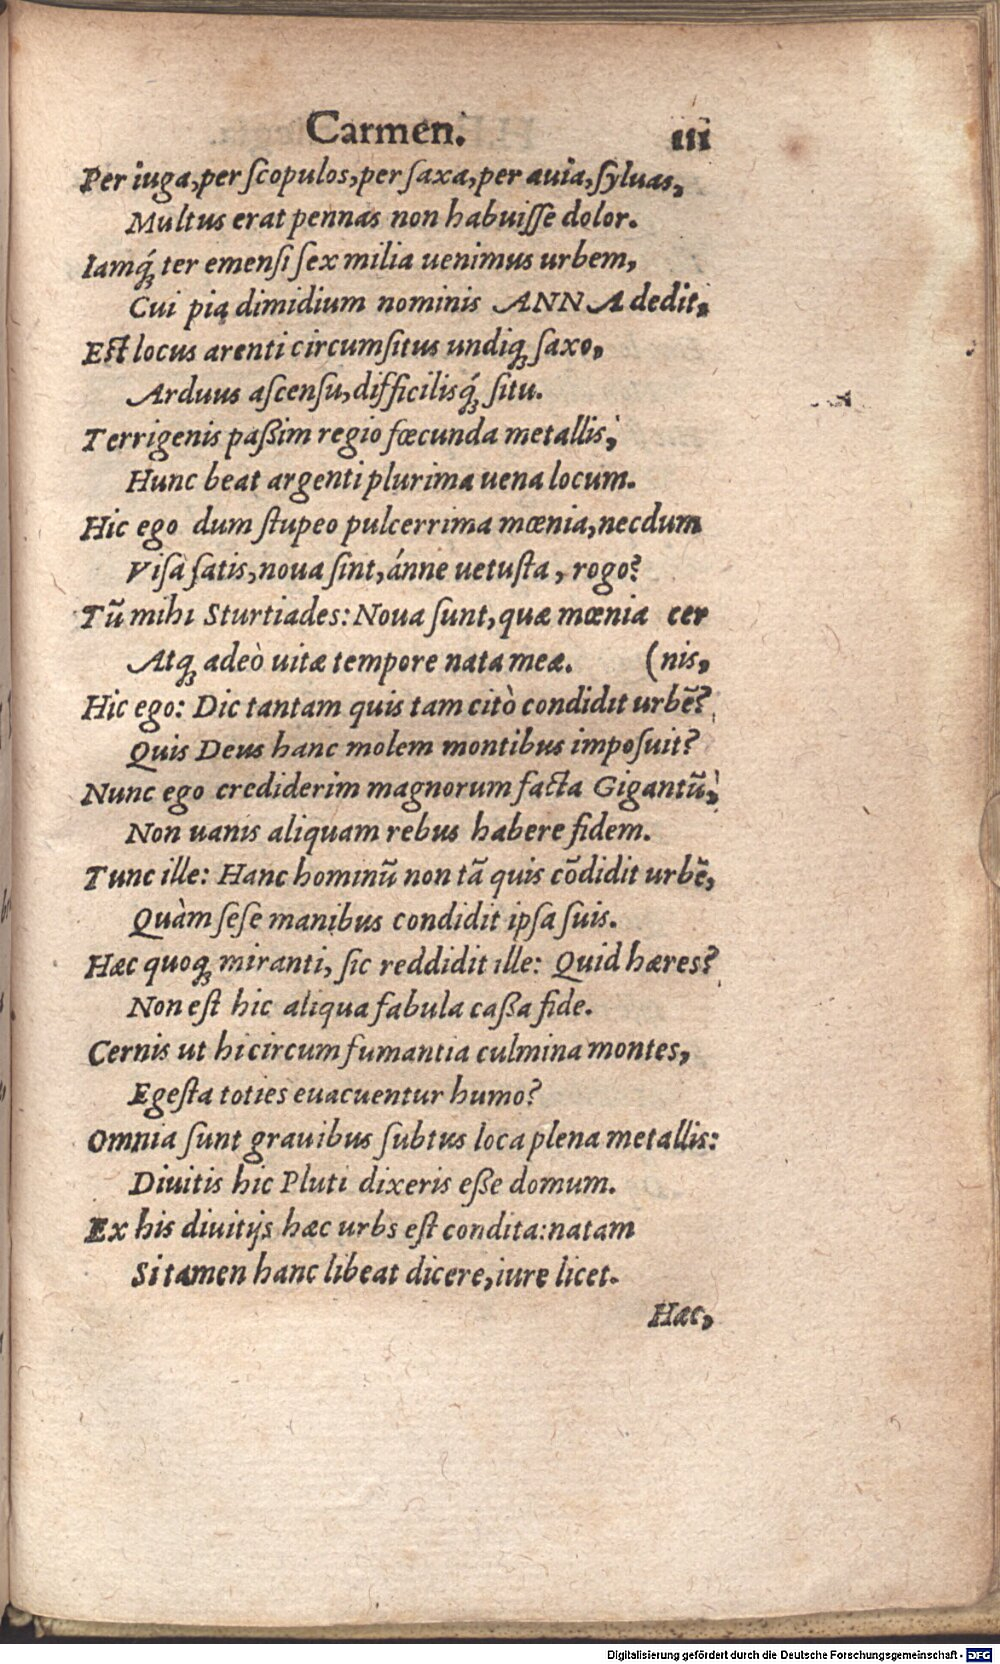 Carmen. III
Per iuga,per scopulos,per saxa,per auia,syluas,
Multus erat pennas non habuisse dolor.
Iamq́; ter emensi sex milia uenimus urbem,
Cui pia dimidium nominis ANNA dedit,
Est locus arenti circumsitus undiq; saxo,
Arduus ascensu,difficilisq́; situ.
Terrigenis paßim regio fœcunda metallis,
Hunc beat argenti plurima uena locum.
Hic ego dum stupeo pulcerrima mœnia,necdum
Visa satis,noua sint,ánne uetusta, rogo?
Tũ mihi Sturtiades: Noua sunt,quæ mœnia cer
Atq; adeò uitæ tempore nata meæ. (nis,
Hic ego: Dic tantam quis tam citò condidit urbẽ?
Quis Deus hanc molem montibus imposuit?
Nunc ego crediderim magnorum facta Gigantũ,
Non uanis aliquam rebus habere fidem.
Tunc ille: Hanc hominũ non tã quis cõdidit urbẽ,
Quàm sese manibus condidit ipsa suis.
Hæc quoq; miranti, sic reddidit ille: Quid hæres?
Non est hic aliqua fabula caßa fide.
Cernis ut hi circum fumantia culmina montes,
Egesta toties euacuentur humo?
Omnia sunt grauibus subtus loca plena metallis:
Diuitis hic Pluti dixeris eße domum.
Ex his diuitijs hæc urbs est condita:natam
Si tamen hanc libeat dicere,iure licet.
Hæc,
Digitalisierung gefördert durch die Deutsche Forschungsgemeinschaft - DFG